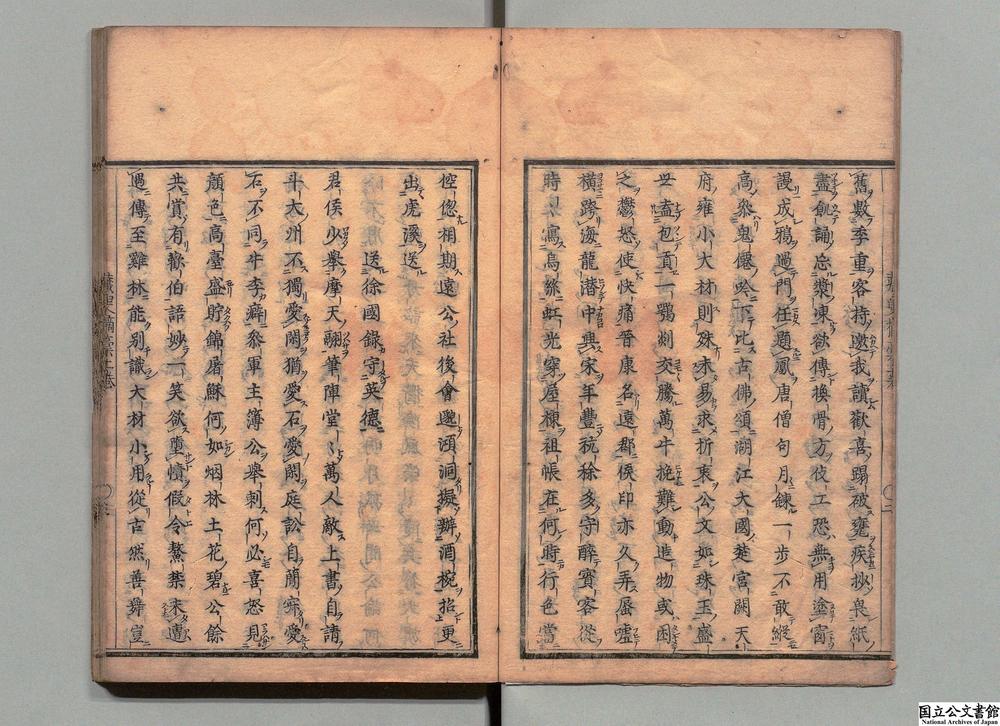 舊數季重客持邀我讀歡喜蹋破甕疾抄畏紙
盡創誦忘漿凍欲傳換骨方彼工恐無用塗窗
謾成鴉過門任題鳳唐僧句月鍊一步不敢縱
高參鬼僊吟下比古佛頌湖江大國楚宮闕天
府雍小大材則殊未易求折衷公文如珠玉盛
世盍包貢一鶚剡交騰萬牛挽難動造物或困
之鬱怒使快痛晉康名遠郡侯印亦久弄蜃噓
橫跨海龍潛中興宋年豐秔稌多守醉賓客從
時時寫烏絲虹光穿屋棟祖帳在何時行色當
倥偬相期遠公社後會邈澒洞擬辦酒椀招更
出虎溪送
送徐國錄守英德
君侯少舉摩天翮筆陣堂堂萬人敵上書自請
斗大州不獨愛閑猶愛石愛閑庭訟自簡寂愛
石不同牛李癖參軍主簿公舉刺何必喜恐見
顏色高臺盛貯錦屠蘇何如烟林土花碧公餘
共賞有歡伯語妙一笑欲墮幘假令鰲禁未遭
過傳至雞林能別識大材小用從古然善舞豈
国立公文書館
National Archives of Japan